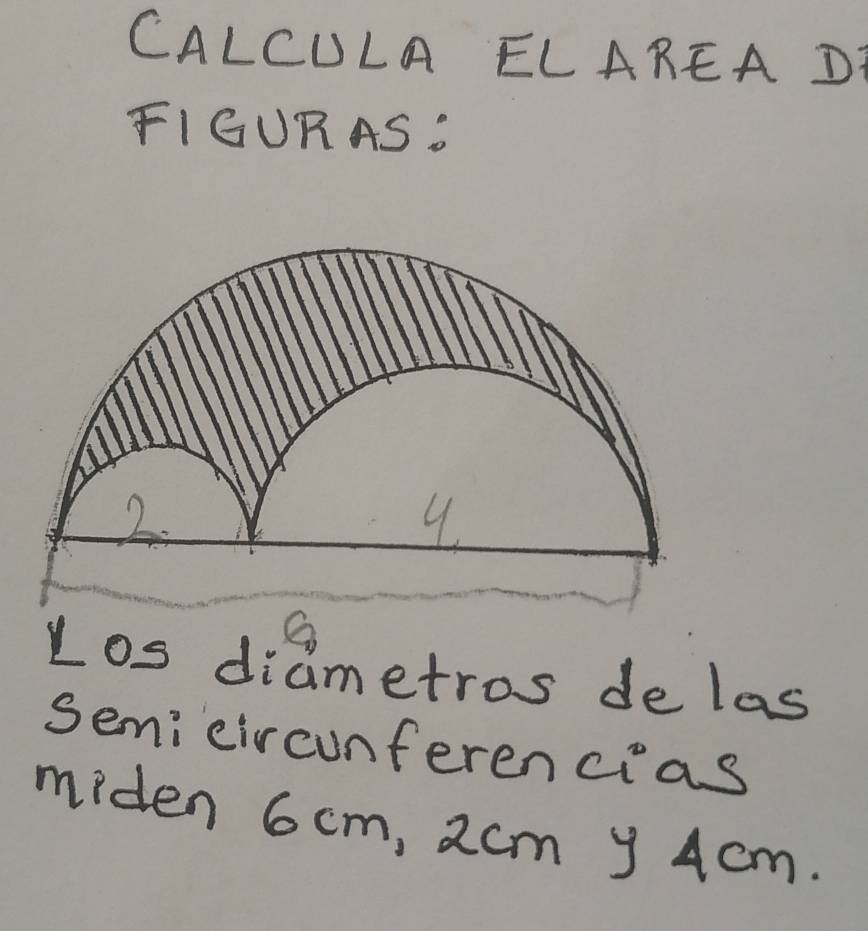 CALCULA EL AREA D
FIGURAS:
2
4
Los diámetros de las
semicircunferencias
miden 6cm, 2cm y 4cm.